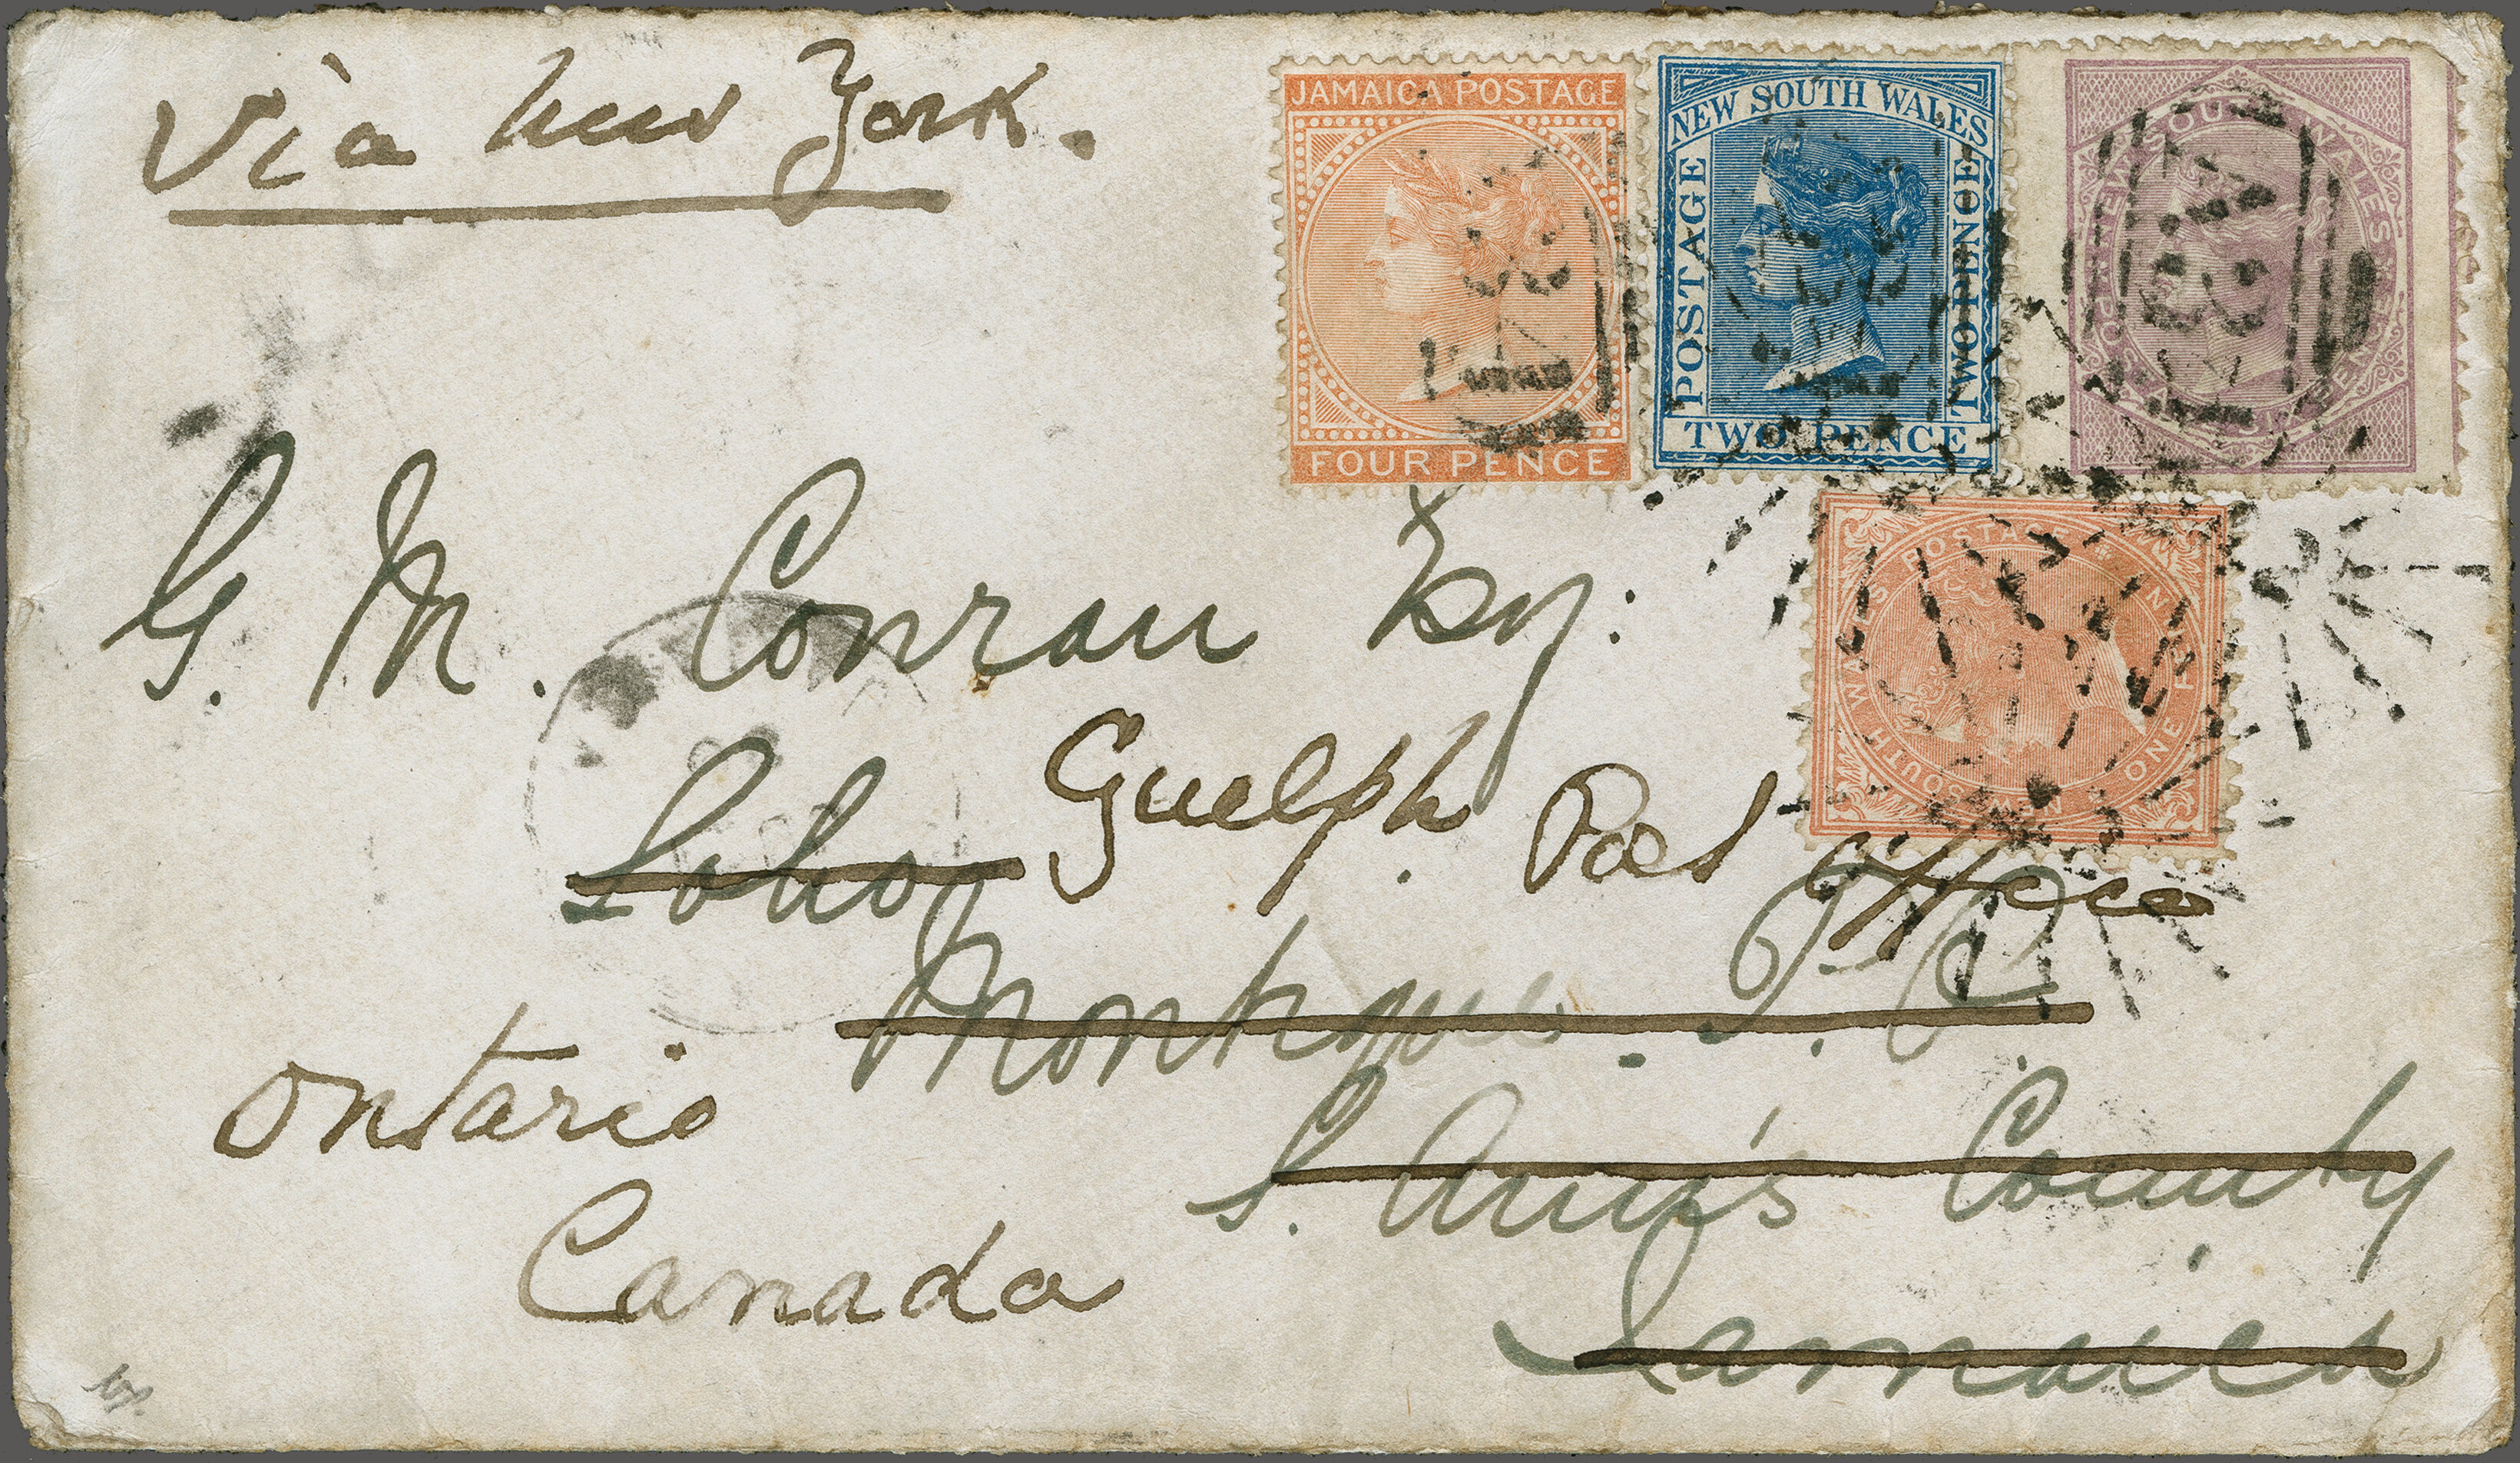 via New York.
JAMAICA POSTAGE
FOUR PENCE
NEW SOUTH WALES
POSTAGE
TWO PENCE
TWO PENCE
NEW SOUTH WALES
POSTAGE
PENCE
NEW SOUTH WALES POSTAGE
ONE PENNY
G. M. Conran Esq:
Soho
Guelph Post Office
Moneague. P. O.
Ontario
S. Ann's County
Canada
Jamaica